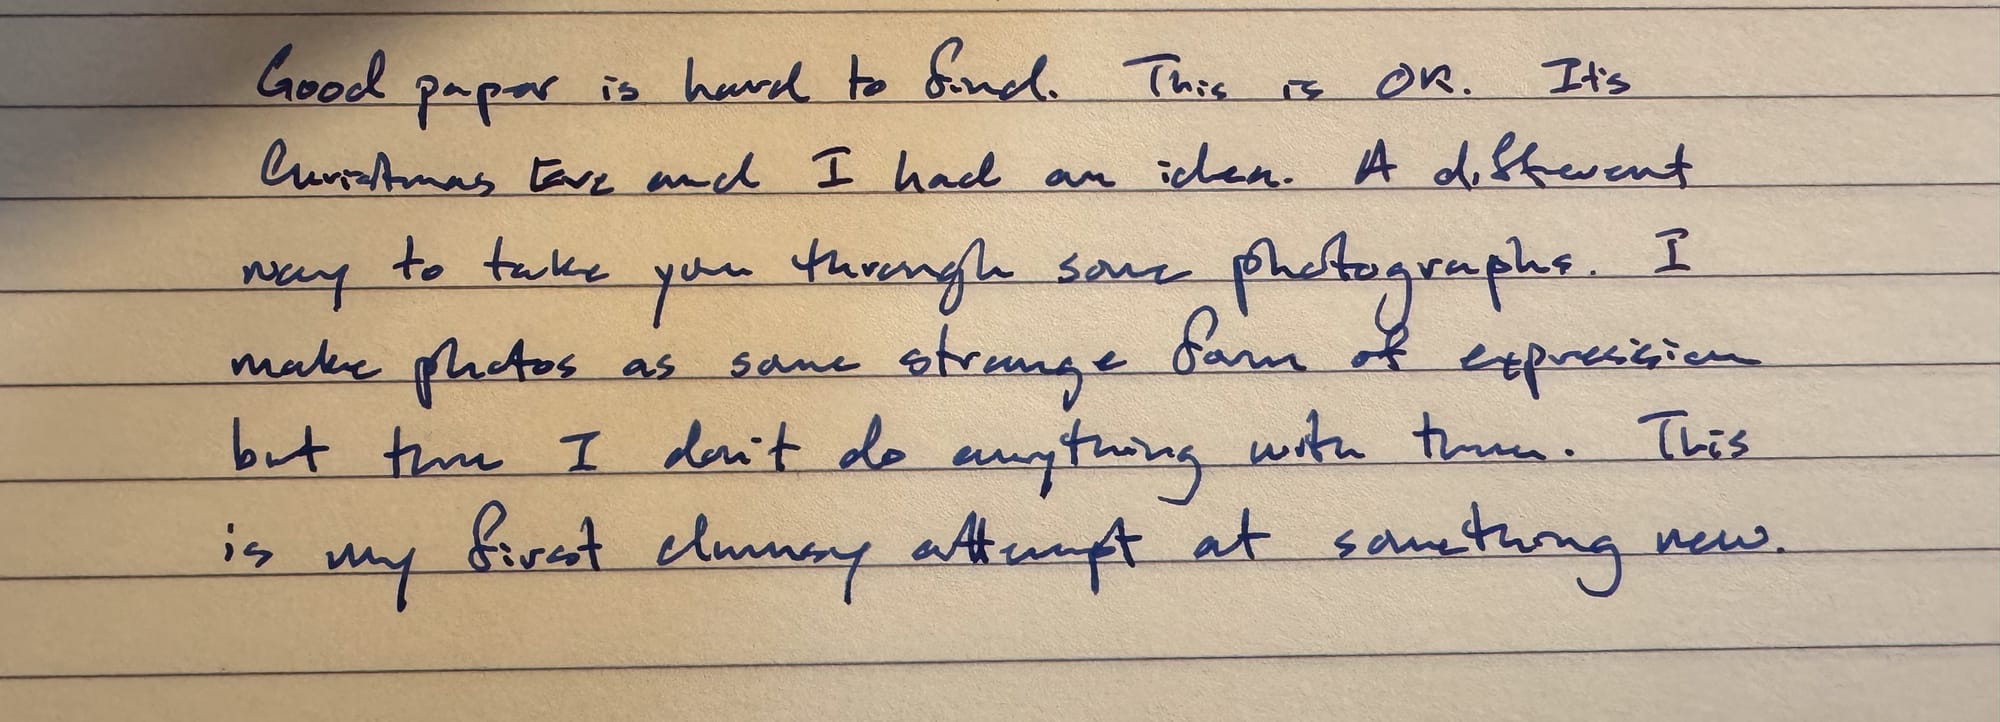 Good paper is hard to find. This is OK. It's
Christmas Eve and I had an idea. A different
way to take you through some photographs. I
make photos as some strange form of expression
but then I don't do anything with them. This
is my first clumsy attempt at something new.